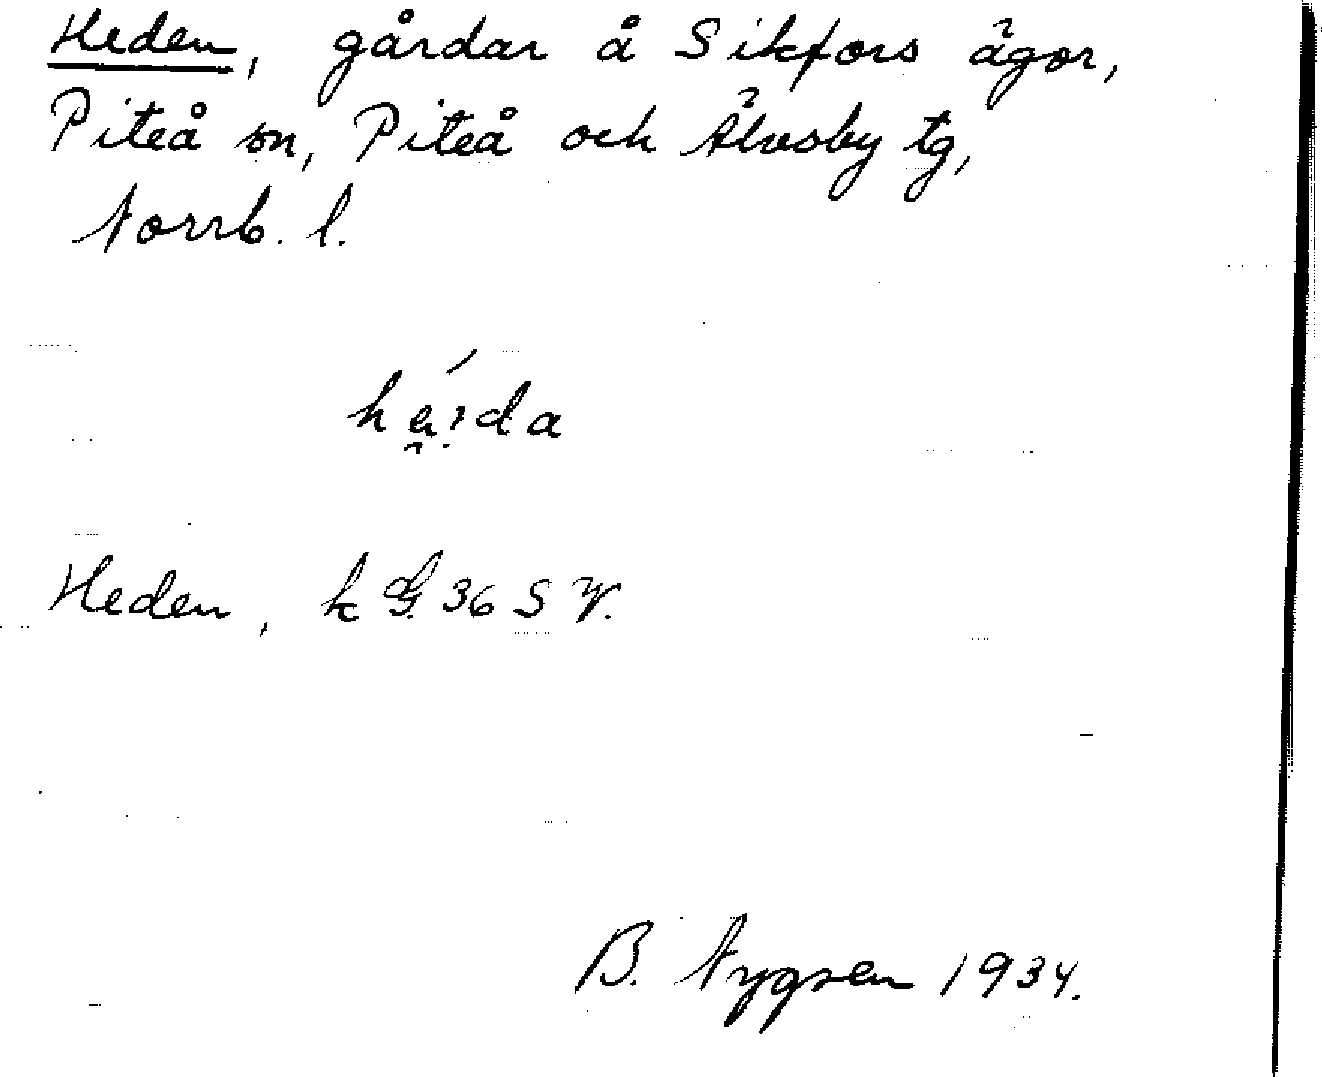 Heden, gårdar å Sikfors ägor,
Piteå sn, Piteå och Älvsby tg,
Norrb. l.
Heden, k G. 36 S V.
B. Nygren 1934.